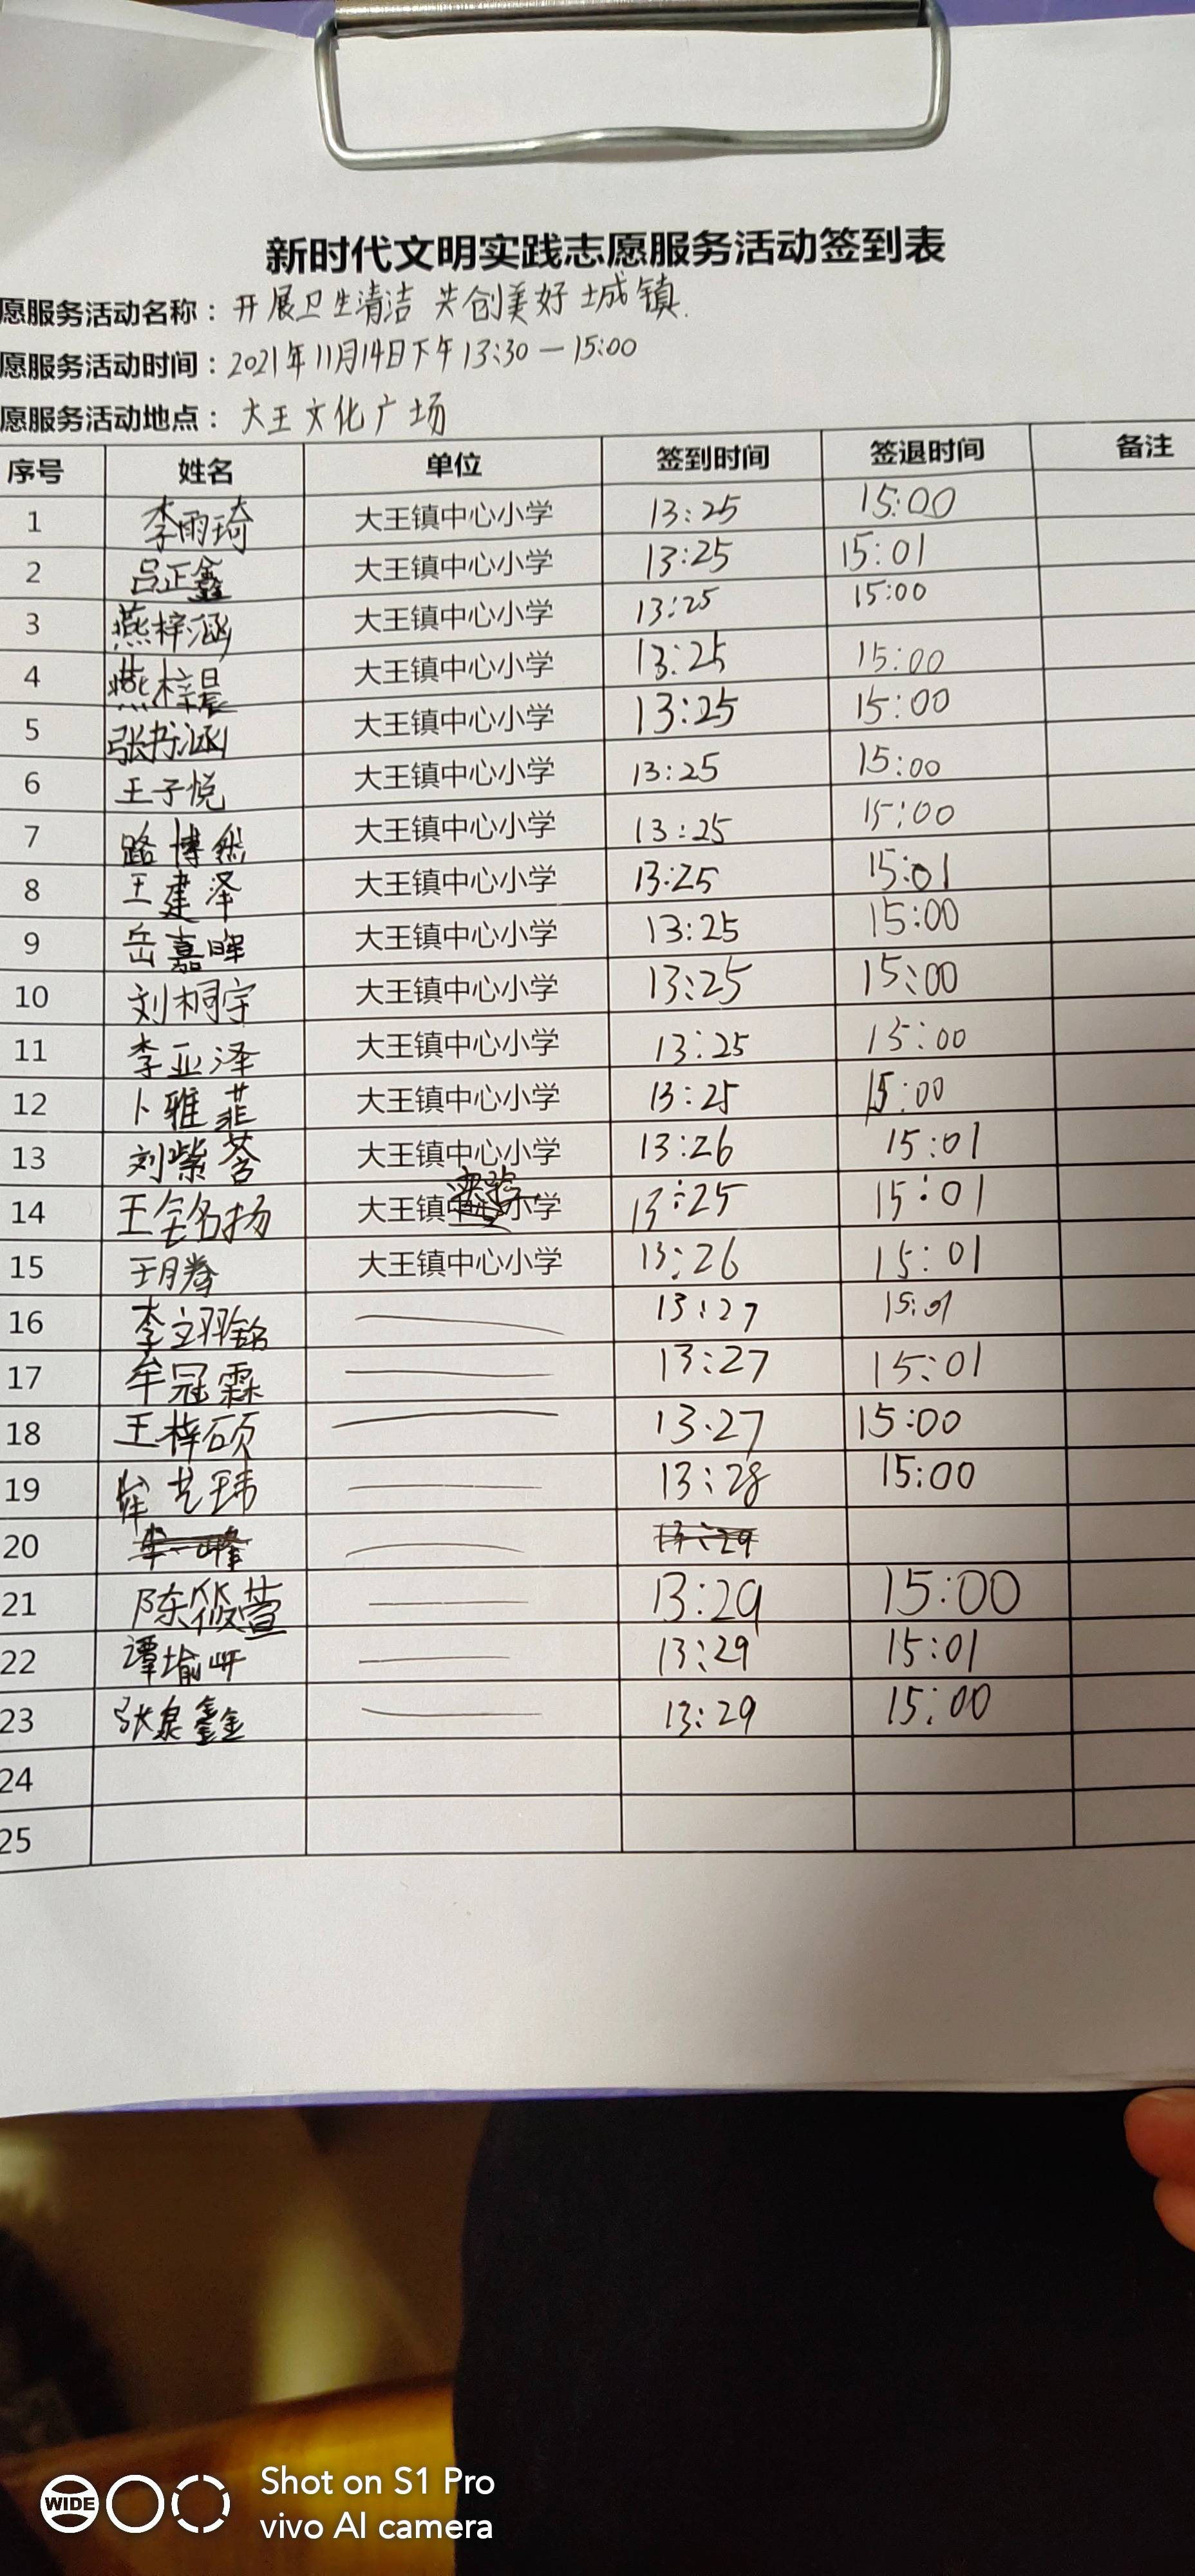 新时代文明实践志愿服务活动签到表
愿服务活动名称：开展卫生清洁 共创美好城镇.
愿服务活动时间：2021年11月14日下午13:30—15:00
愿服务活动地点：大王文化广场
序号 姓名 单位 签到时间 签退时间 备注
1 李雨琦 大王镇中心小学 13:25 15:00
2 吕正鑫 大王镇中心小学 13:25 15:01
3 燕梓涵 大王镇中心小学 13:25 15:00
4 燕梓晨 大王镇中心小学 13:25 15:00
5 张书涵 大王镇中心小学 13:25 15:00
6 王子悦 大王镇中心小学 13:25 15:00
7 路博然 大王镇中心小学 13:25 15:00
8 王建泽 大王镇中心小学 13:25 15:01
9 岳嘉晖 大王镇中心小学 13:25 15:00
10 刘桐宇 大王镇中心小学 13:25 15:00
11 李亚泽 大王镇中心小学 13:25 15:00
12 卜雅菲 大王镇中心小学 13:25 15:00
13 刘紫荅 大王镇中心小学 13:26 15:01
14 王铭扬 大王镇小学 13:25 15:01
15 王腾 大王镇中心小学 13:26 15:01
16 李立羽铭 13:27 15:01
17 牟冠霖 13:27 15:01
18 王梓硕 13:27 15:00
19 牟艺玮 13:28 15:00
20 13:29
21 陈筱萱 13:29 15:00
22 谭瑜 13:29 15:01
23 张泉鑫 13:29 15:00
24
25
WIDE
Shot on S1 Pro
vivo AI camera